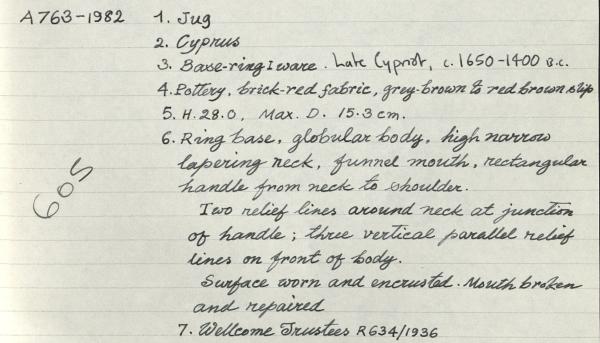 A763-1982 1. Jug
2. Cyprus
3. Base-ring I ware. Late Cypriot, c. 1650-1400 B.C.
4. Pottery, brick-red fabric, grey-brown to red brown slip
5. H. 28.0, Max. D. 15.3 cm.
6. Ring base, globular body, high narrow
tapering neck, funnel mouth, rectangular
handle from neck to shoulder.
Two relief lines around neck at junction
of handle; three vertical parallel relief
lines on front of body.
Surface worn and encrusted. Mouth broken
and repaired
7. Wellcome Trustees R634/1936
605